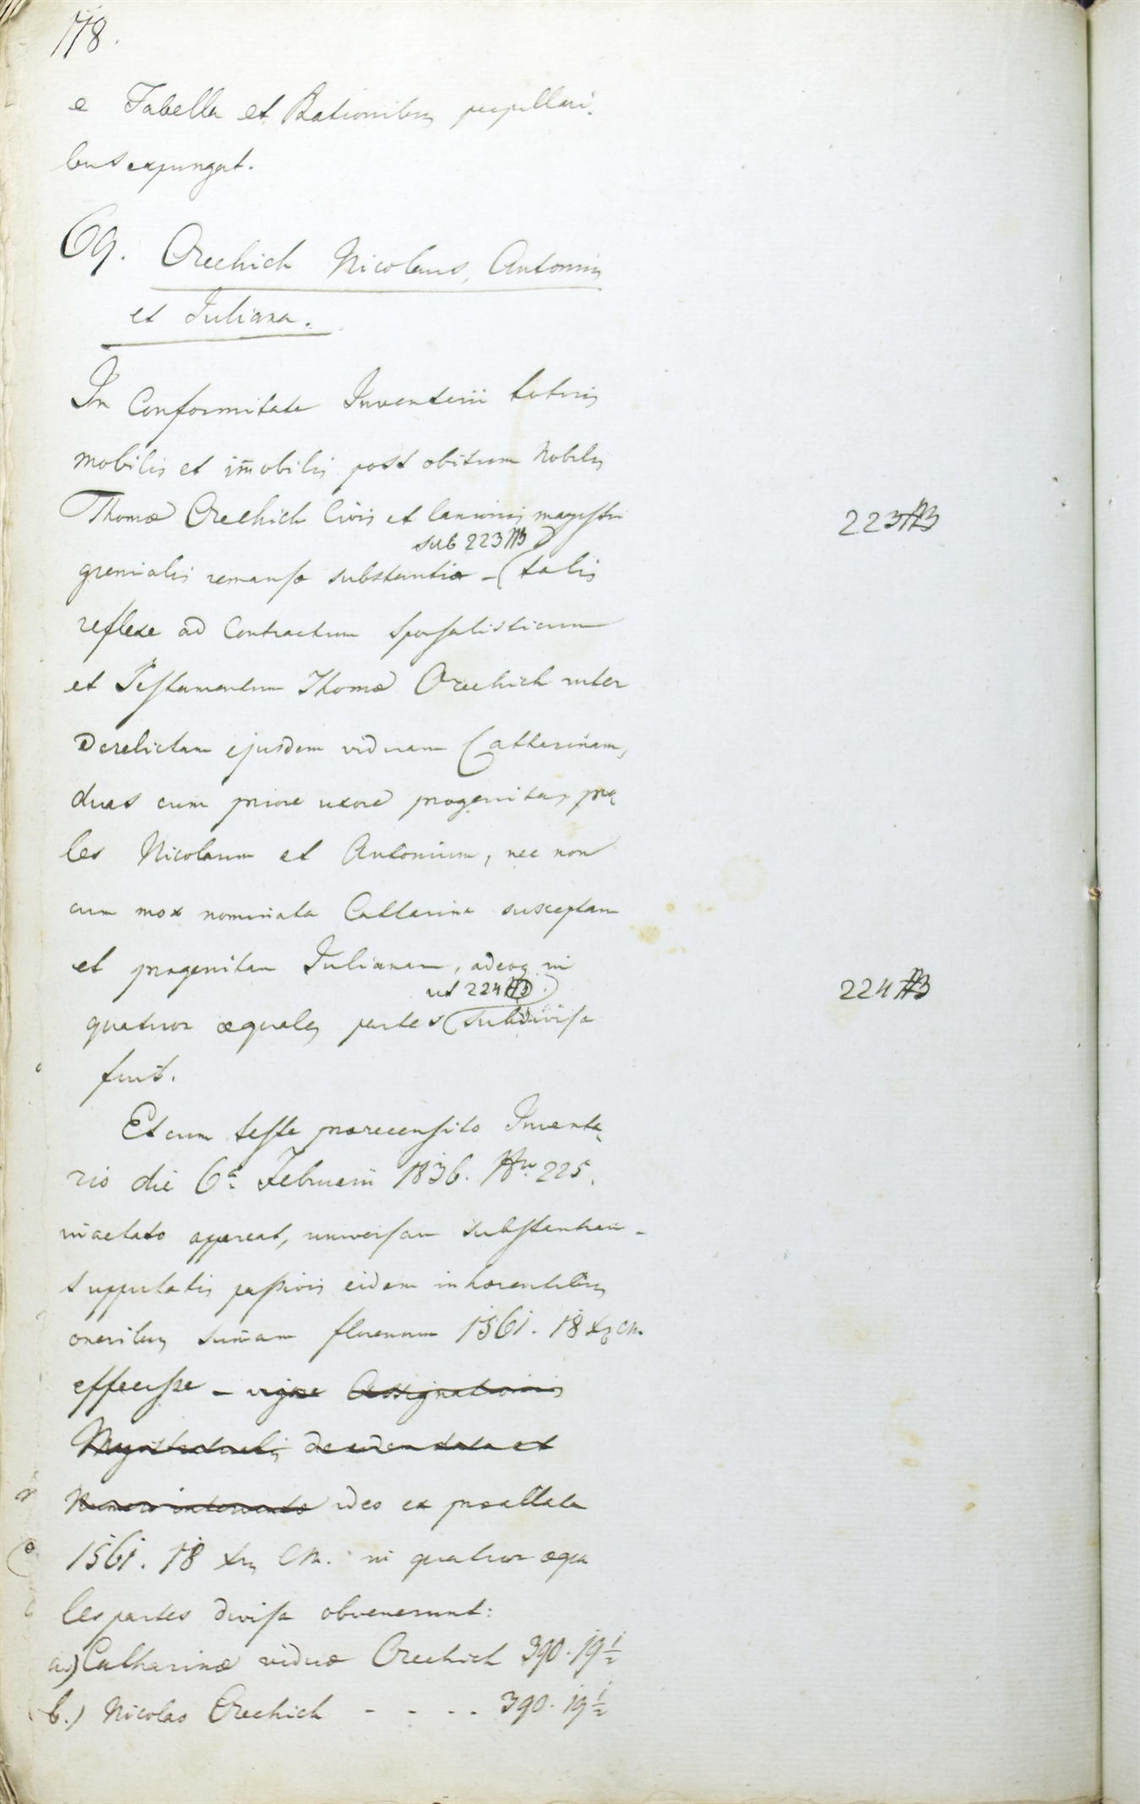 178.
e Tabella et Rationibus pupillari-
bus expungat.
69. Orechich Nicolaus, Antonius
et Juliana.
In Conformitate Inventarii totius
mobilis et im̄obilis post obitum Nobilis
Thomæ Orechich Civis et lanionis magistri
223
sub 223
gremialis remansæ substantiæ - (talis
reflexe ad Contractum Sponsalisticum
et Testamentum Thomæ Orechich inter
Derelictam ejusdem viduam Catharinam,
duas cum priore uxore progenitas pro
les Nicolaum et Antonium, nec non
cum mox nominata Catharina susceptam
et progenitam Julianam, adeoq in
ut 224
224
quatuor æquales partes (subdivisa
fuit.
Et cum teste prærecensito Inventa-
rio die 6a Februarii 1836. Nro 225.
inactato appareat, universam substantiam -
supputatis passivis eidem inhærentibus
oneribus sum̄am florenorum 1561. 18 xr CM.
effecisse - vigore Assignationis
Magistratualis
ideo ex præallata
1561. 18 xr CM. in quatuor æqua
les partes divisa obvenerunt:
a.) Catharinæ viduæ Orechich 390. 19½
b.) Nicolao Orechich - - - - 390. 19½